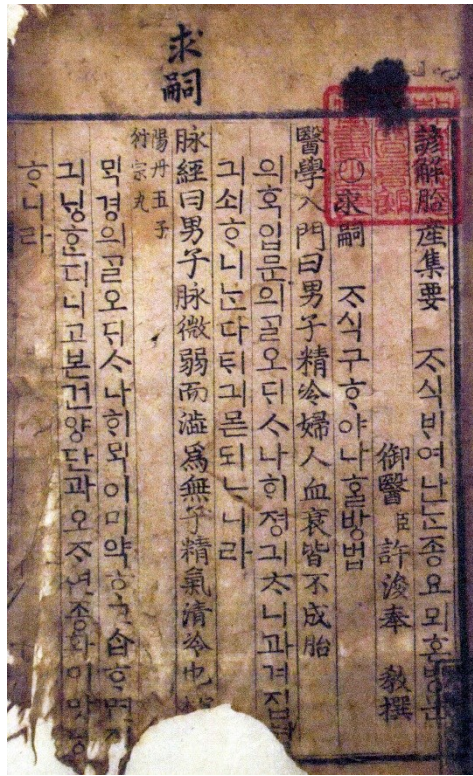 求嗣
諺解胎産集要 ᄌᆞ식ᄇᆡ여난ᄂᆞᆫ종요모ᄒᆞᆫ방문
御醫臣許浚奉 敎撰
求嗣 ᄌᆞ식구ᄒᆞ야나ᄒᆞᆯ방법
醫學入門曰男子精冷婦人血衰皆不成胎
의혹입문의ᄀᆞᆯ오ᄃᆡᄉᆞ나ᄒᆡ졍긔ᄎᆞ니과겨집
긔쇠ᄒᆞ니ᄂᆞᆫ다ᄐᆡ긔몯되ᄂᆞ니라
脉經曰男子脉微弱而澁爲無子精氣清冷也
陽丹五子
衍宗丸
ᄆᆡᆨ경의ᄀᆞᆯ오ᄃᆡᄉᆞ나ᄒᆡᄆᆡᆨ이미약ᄒᆞ고ᄉᆞᆸᄒᆞ면
긔닝ᄒᆞᆫ디니고본건양단과오ᄌᆞ연종환이맛당
ᄒᆞ니라